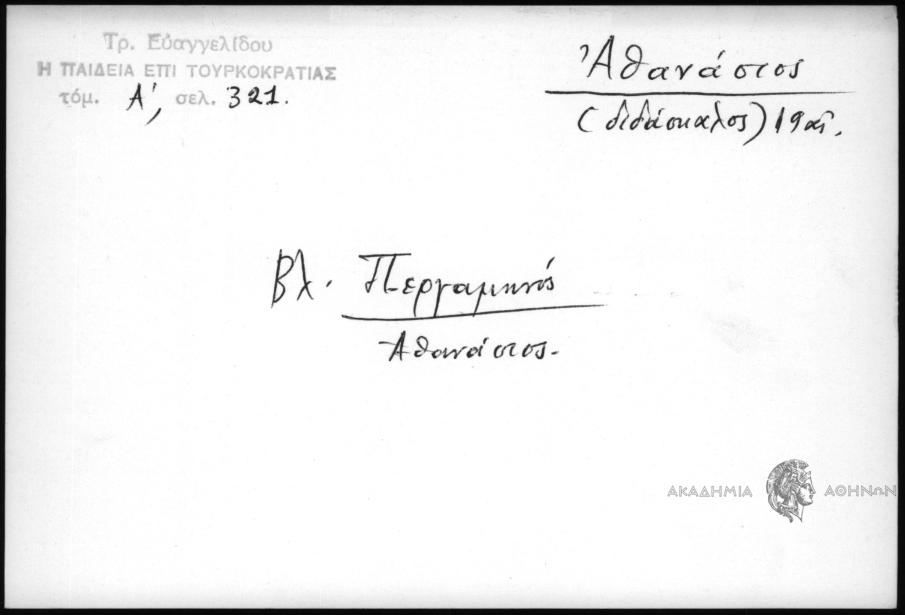 Τρ. Εὐαγγελίδου
Η ΠΑΙΔΕΙΑ ΕΠΙ ΤΟΥΡΚΟΚΡΑΤΙΑΣ
τόμ. Α', σελ. 321.
Ἀθανάσιος
(διδάσκαλος) 19 αἰ.
Βλ. Περγαμηνός
Ἀθανάσιος.
ΑΚΑΔΗΜΙΑ ΑΘΗΝΩΝ